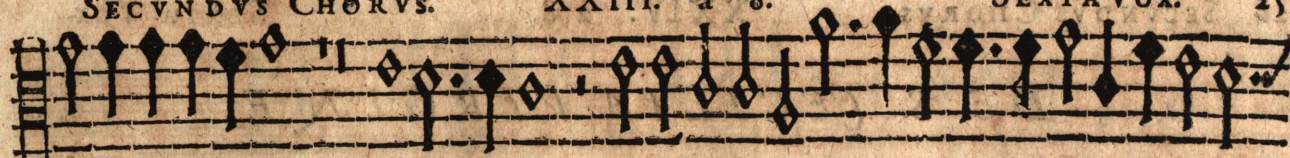 SECVNDVS CHORVS. XXIII. a 8. SEXTA VOX.